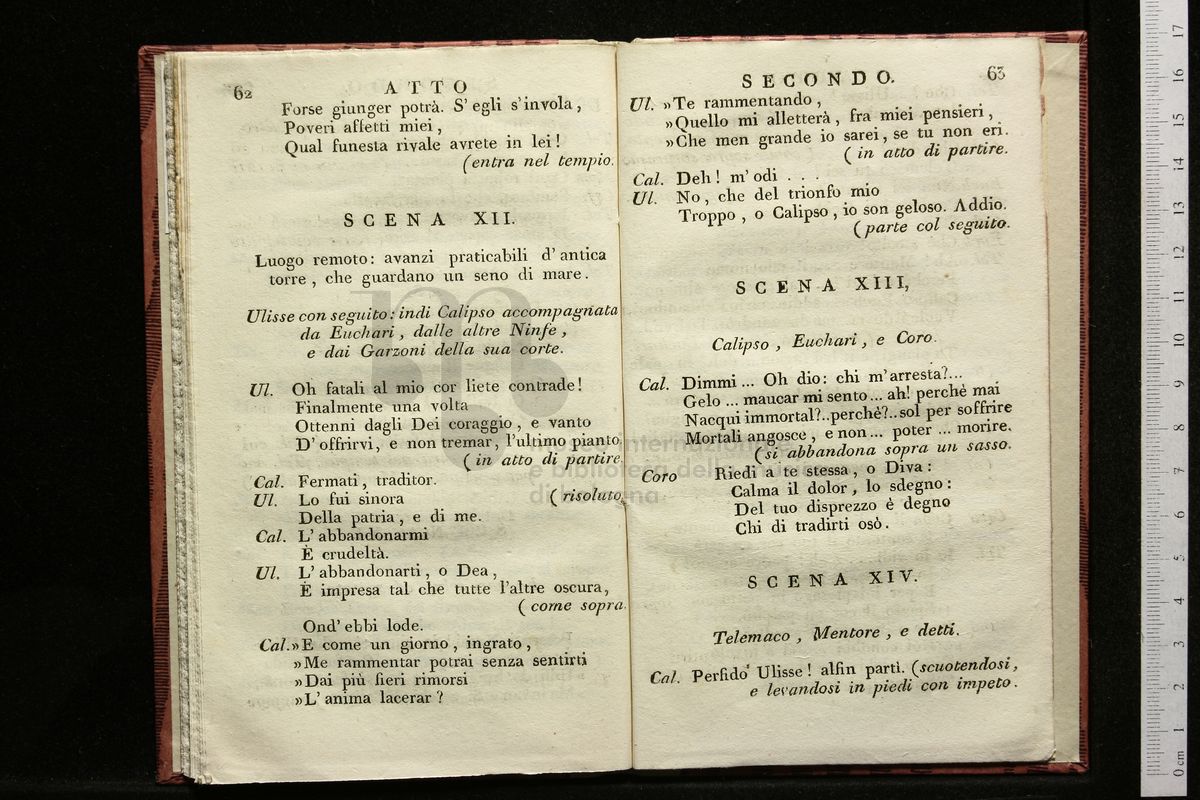 62
ATTO
Forse giunger potrà. S' egli s'invola,
Poveri affetti miei,
Qual funesta rivale avrete in lei!
(entra nel tempio.
SCENA XII.
Luogo remoto: avanzi praticabili d'antica
torre, che guardano un seno di mare.
Ulisse con seguito: indi Calipso accompagnata
da Euchari, dalle altre Ninfe,
e dai Garzoni della sua corte.
Ul. Oh fatali al mio cor liete contrade!
Finalmente una volta
Ottenni dagli Dei coraggio, e vanto
D' offrirvi, e non tremar, l'ultimo pianto
(in atto di partire.
Cal. Fermati, traditor.
Ul. Lo fui sinora (risoluto.
Della patria, e di me.
Cal. L' abbandonarmi
È crudeltà.
Ul. L' abbandonarti, o Dea,
È impresa tal che tutte l'altre oscura,
(come sopra.
Ond' ebbi lode.
Cal. »E come un giorno, ingrato,
»Me rammentar potrai senza sentirti
»Dai più fieri rimorsi
»L' anima lacerar?
SECONDO.
63
Ul. »Te rammentando,
»Quello mi alletterà, fra miei pensieri,
»Che men grande io sarei, se tu non eri.
(in atto di partire.
Cal. Deh! m' odi . . .
Ul. No, che del trionfo mio
Troppo, o Calipso, io son geloso. Addio.
(parte col seguito.
SCENA XIII,
Calipso, Euchari, e Coro.
Cal. Dimmi ... Oh dio: chi m'arresta?...
Gelo ... maucar mi sento ... ah! perchè mai
Nacqui immortal?..perchè?..sol per soffrire
Mortali angosce, e non ... poter ... morire.
(si abbandona sopra un sasso.
Coro Riedi a te stessa, o Diva:
Calma il dolor, lo sdegno:
Del tuo disprezzo è degno
Chi di tradirti osò.
SCENA XIV.
Telemaco, Mentore, e detti.
Cal. Perfido Ulisse! alfin partì. (scuotendosi,
e levandosi in piedi con impeto.